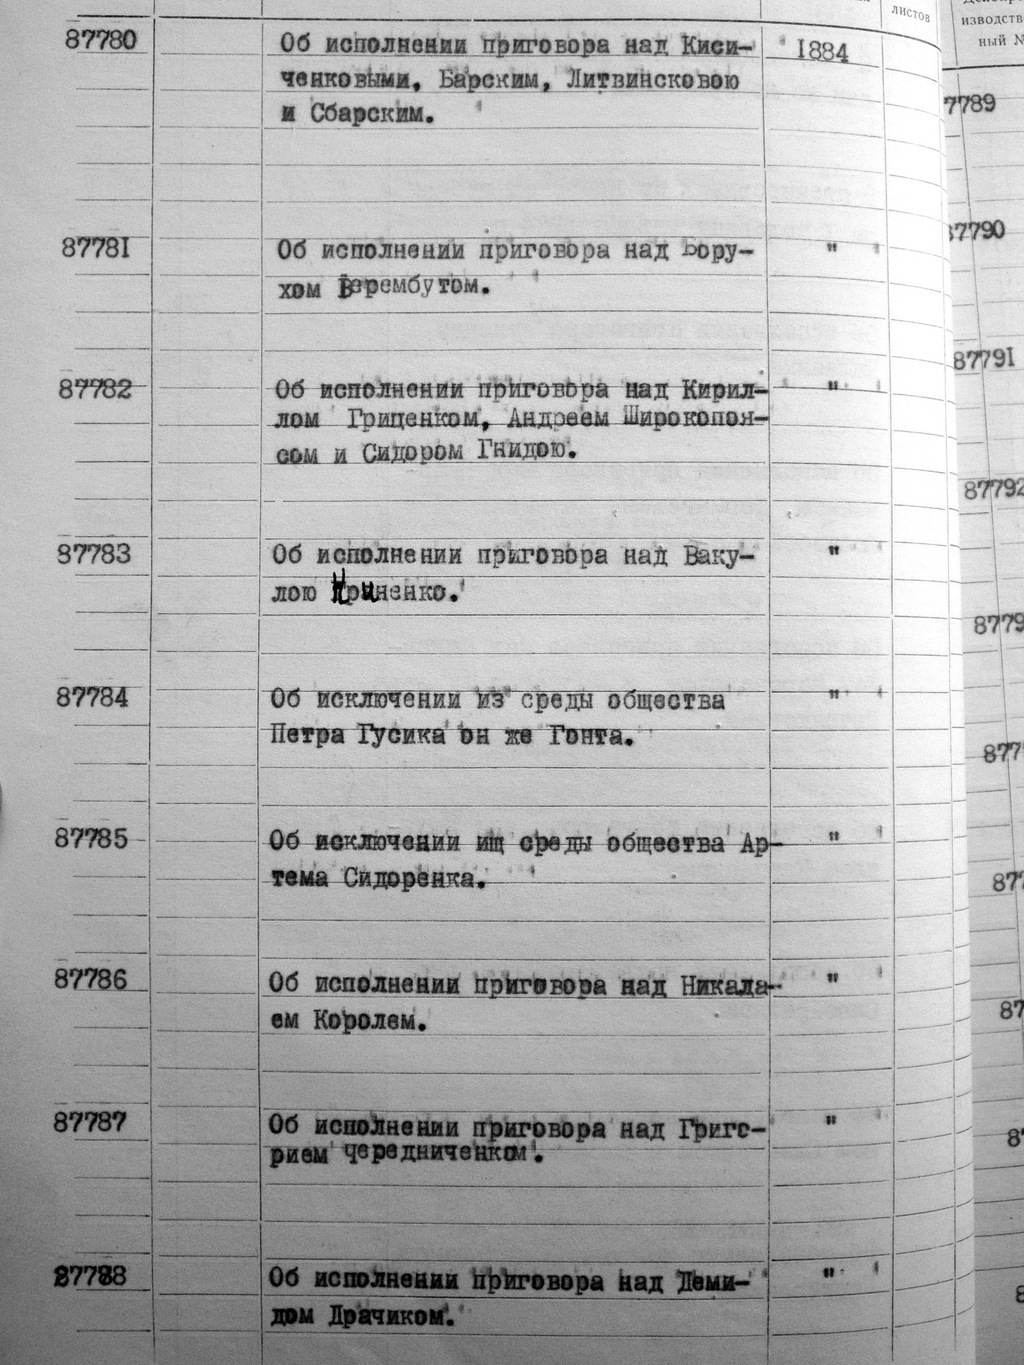 листов
изводств
ный №
87780 Об исполнении приговора над Киси- 1884
ченковыми, Барским, Литвинсковою
и Сбарским.
87781 Об исполнении приговора над Бору- "
хом Верембутом.
87782 Об исполнении приговора над Кирил- "
лом Гриценком, Андреем Широкопоя-
сом и Сидором Гнидою.
87783 Об исполнении приговора над Ваку- "
лою
87784 Об исключении из среды общества "
Петра Гусика он же Гонта.
87785 Об исключении ищ среды общества Ар- "
тема Сидоренка.
87786 Об исполнении приговора над Никала- "
ем Королем.
87787 Об исполнении приговора над Григо- "
рием Чередниченком.
87788 Об исполнении приговора над Деми- "
дом Драчиком.
7789
87790
87791
87792
8779
877
877
87
87
8